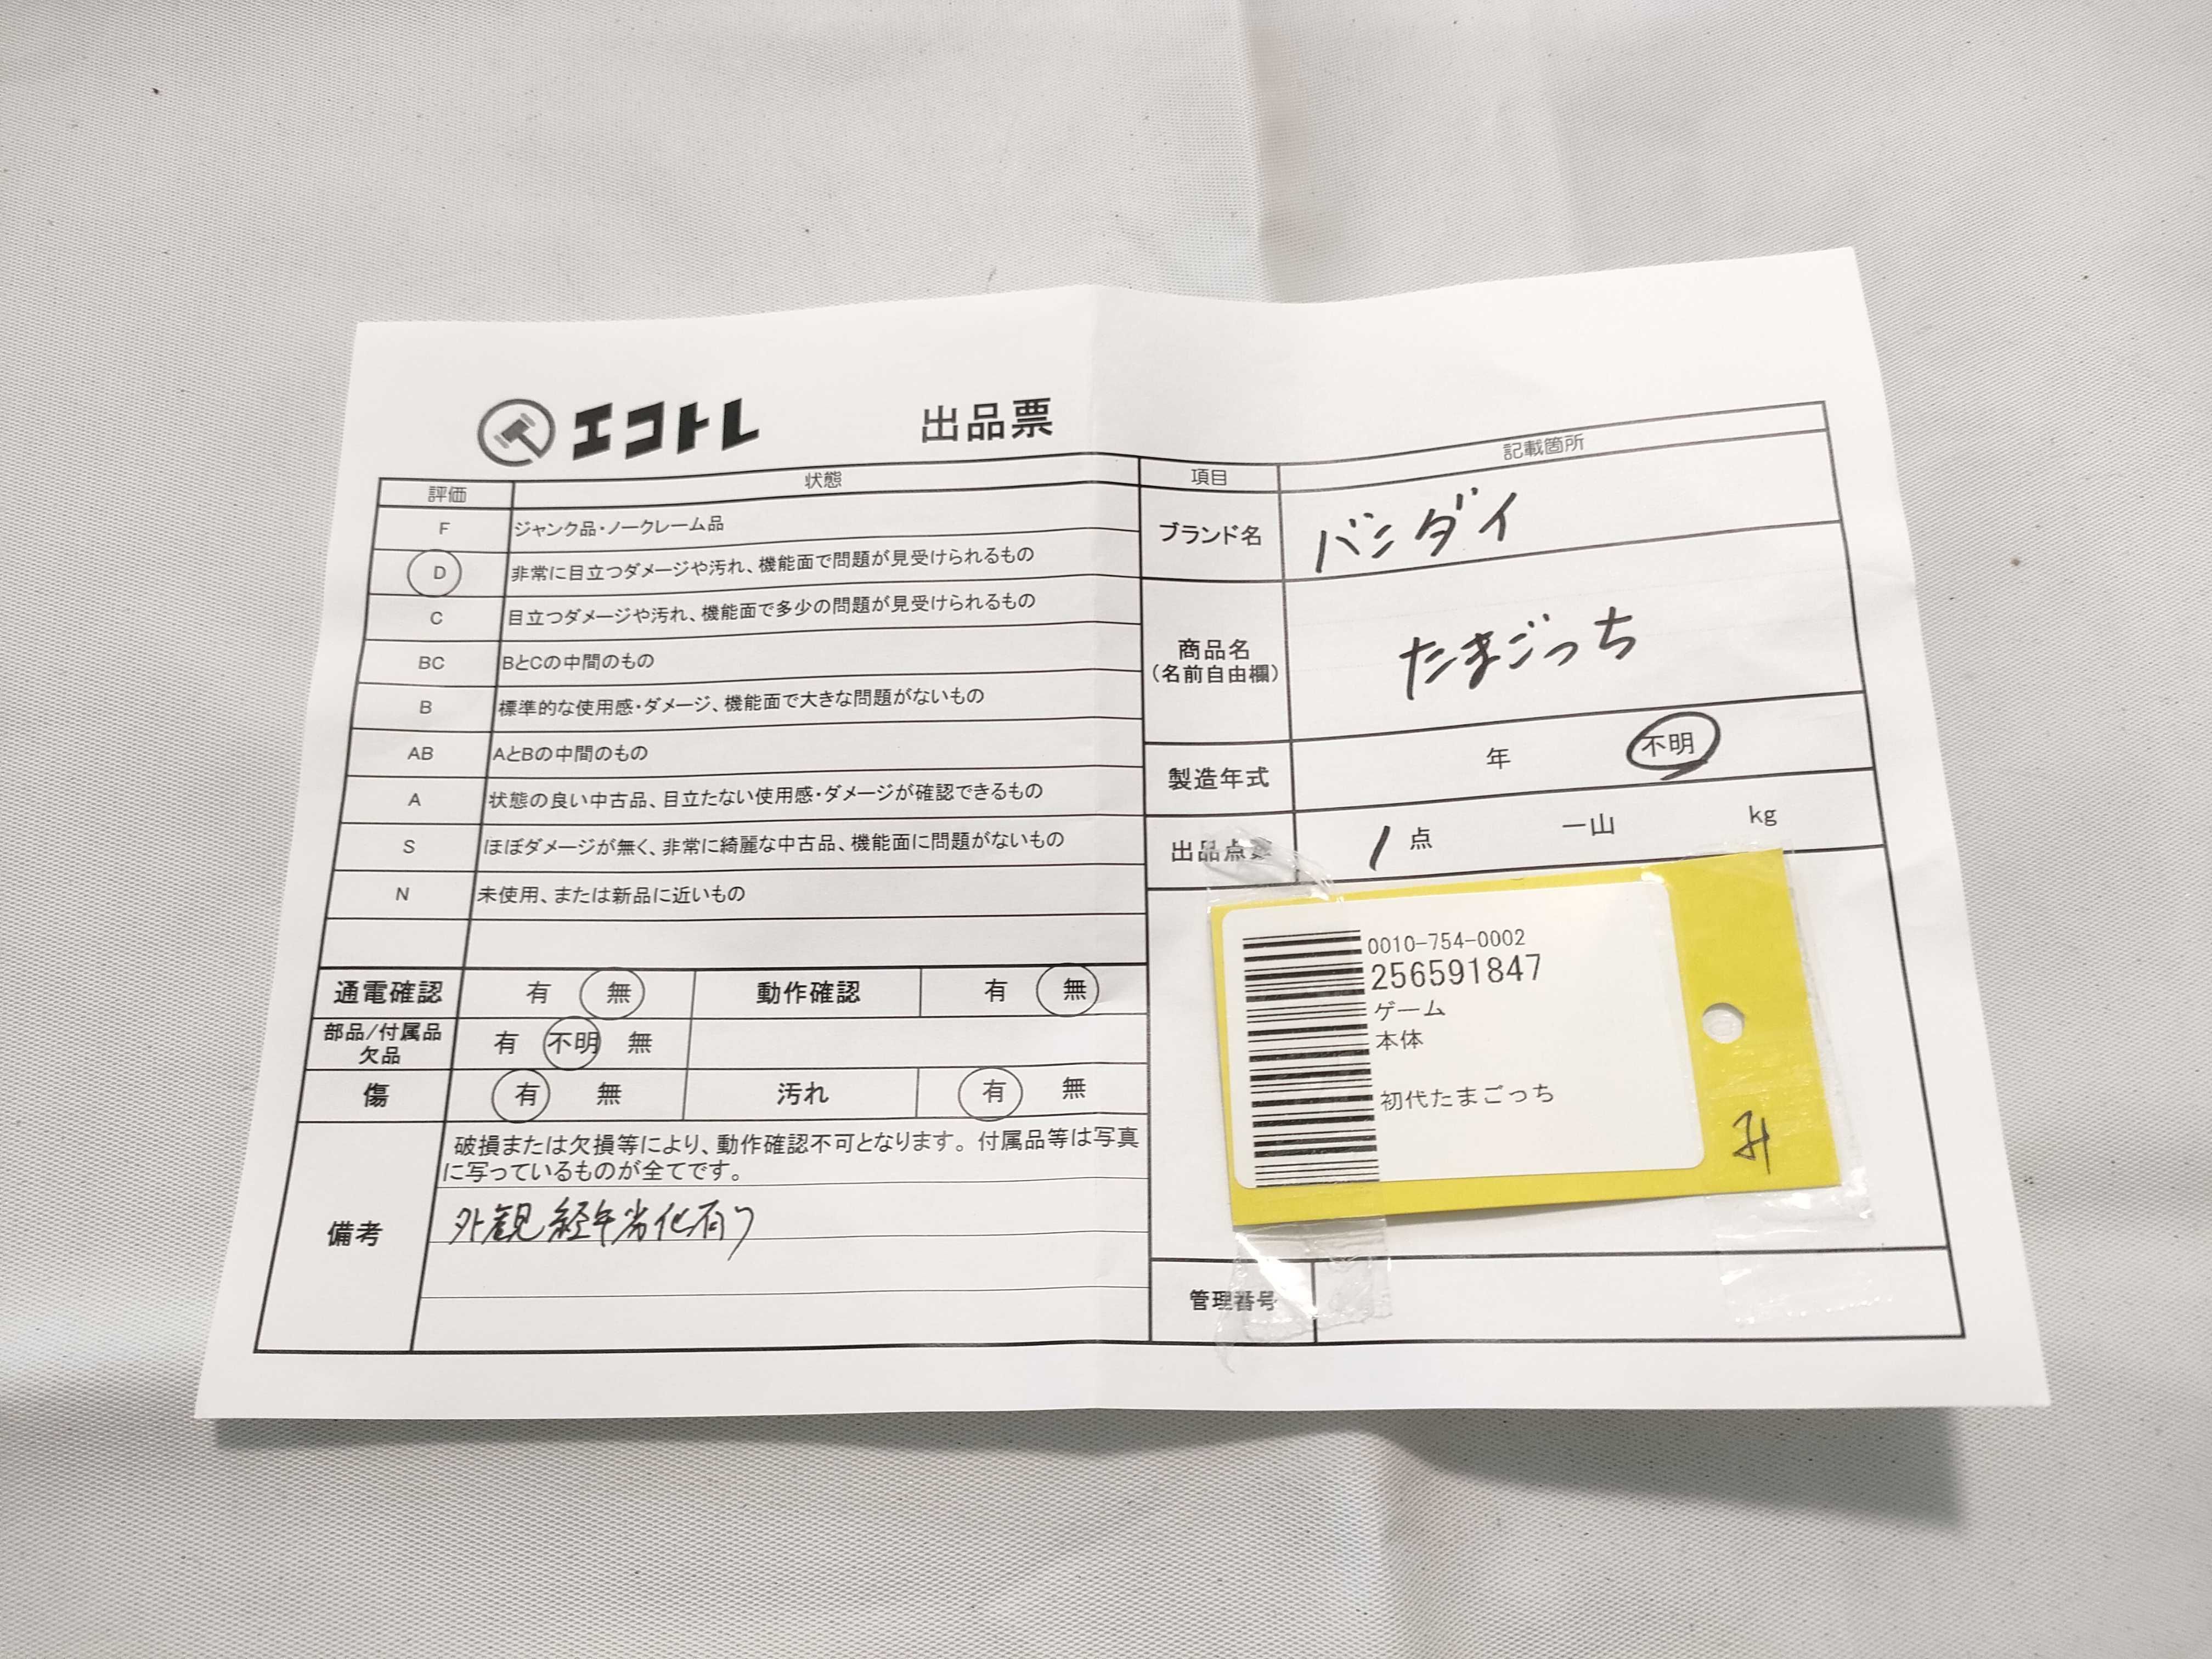 エコトレ
出品票
評価 状態
F ジャンク品・ノークレーム品
D 非常に目立つダメージや汚れ、機能面で問題が見受けられるもの
C 目立つダメージや汚れ、機能面で多少の問題が見受けられるもの
BC BとCの中間のもの
B 標準的な使用感・ダメージ、機能面で大きな問題がないもの
AB AとBの中間のもの
A 状態の良い中古品、目立たない使用感・ダメージが確認できるもの
S ほぼダメージが無く、非常に綺麗な中古品、機能面に問題がないもの
N 未使用、または新品に近いもの
通電確認 有 無 動作確認 有 無
部品/付属品
欠品
有 不明 無
傷 有 無 汚れ 有 無
備考
破損または欠損等により、動作確認不可となります。付属品等は写真
に写っているものが全てです。
外観経年劣化有り
項目 記載箇所
ブランド名 バンダイ
商品名
(名前自由欄)
たまごっち
製造年式 年 不明
出品点数 1 点 一山 kg
0010-754-0002
256591847
ゲーム
本体
初代たまごっち
管理番号